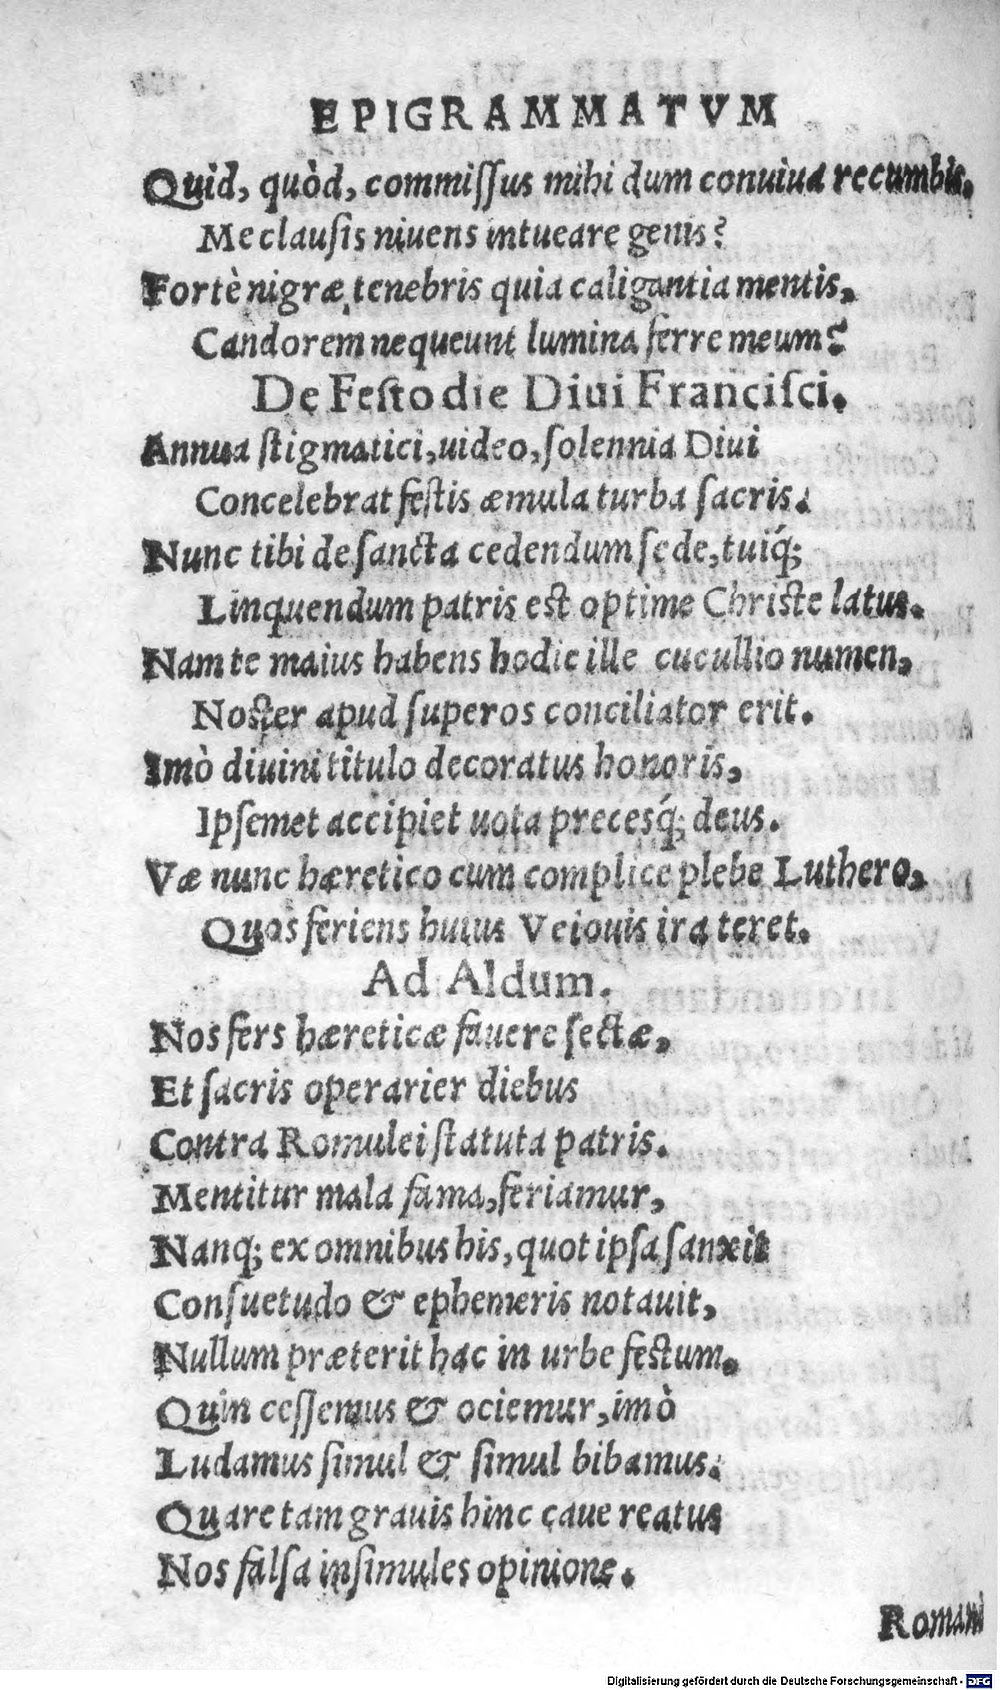 EPIGRAMMATVM
Quid, quòd, commiſſus mihi dum conuiua recumbis,
Me clauſis niuens intueare genis?
Fortè nigræ tenebris quia caligantia mentis,
Candorem nequeunt lumina ferre meum?
De Feſto die Diui Franciſci.
Annua ſtigmatici, uideo, ſolennia Diui
Concelebrat feſtis æmula turba ſacris.
Nunc tibi de ſancta cedendum ſede, tuiq́;
Linquendum patris est optime Chriſte latus.
Nam te maius habens hodie ille cucullio numen,
Noſter apud ſuperos conciliator erit.
Imò diuini titulo decoratus honoris,
Ipſemet accipiet uota precesq́; deus.
Væ nunc hæretico cum complice plebe Luthero,
Quos feriens huius Veiouis ira teret.
Ad Aldum.
Nos fers hæreticæ fauere ſectæ,
Et ſacris operarier diebus
Contra Romulei ſtatuta patris.
Mentitur mala fama, feriamur,
Nanq; ex omnibus his, quot ipſa ſanxit
Conſuetudo & ephemeris notauit,
Nullum præterit hac in urbe feſtum.
Quin ceſſemus & ociemur, imò
Ludamus ſimul & ſimul bibamus.
Quare tam grauis hinc caue reatus
Nos falſa inſimules opinione.
Romani
Digitalisierung gefördert durch die Deutsche Forschungsgemeinschaft - DFG